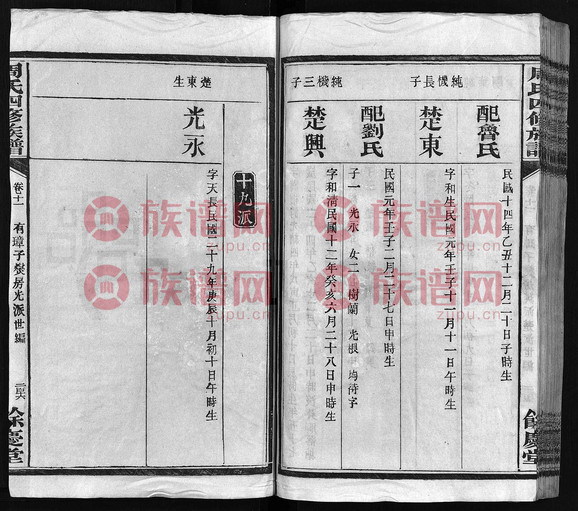 周氏四修族譜
餘慶堂
配魯氏
民國十四年乙丑十二月二十日子時生
純機長子
楚東
字和生民國元年壬子十一月十一日午時生
配劉氏
民國元年壬子二月二十七日申時生
子一 光永 女二 樹蘭 光根 均待字
純機三子
楚興
字和清民國十二年癸亥六月二十八日申時生
十九派
楚東生
光永
字天長民國二十九年庚辰十月初十日午時生
周氏四修族譜
卷十一
有璋子燮房光派世編
餘慶堂
族譜网
zupu.cn